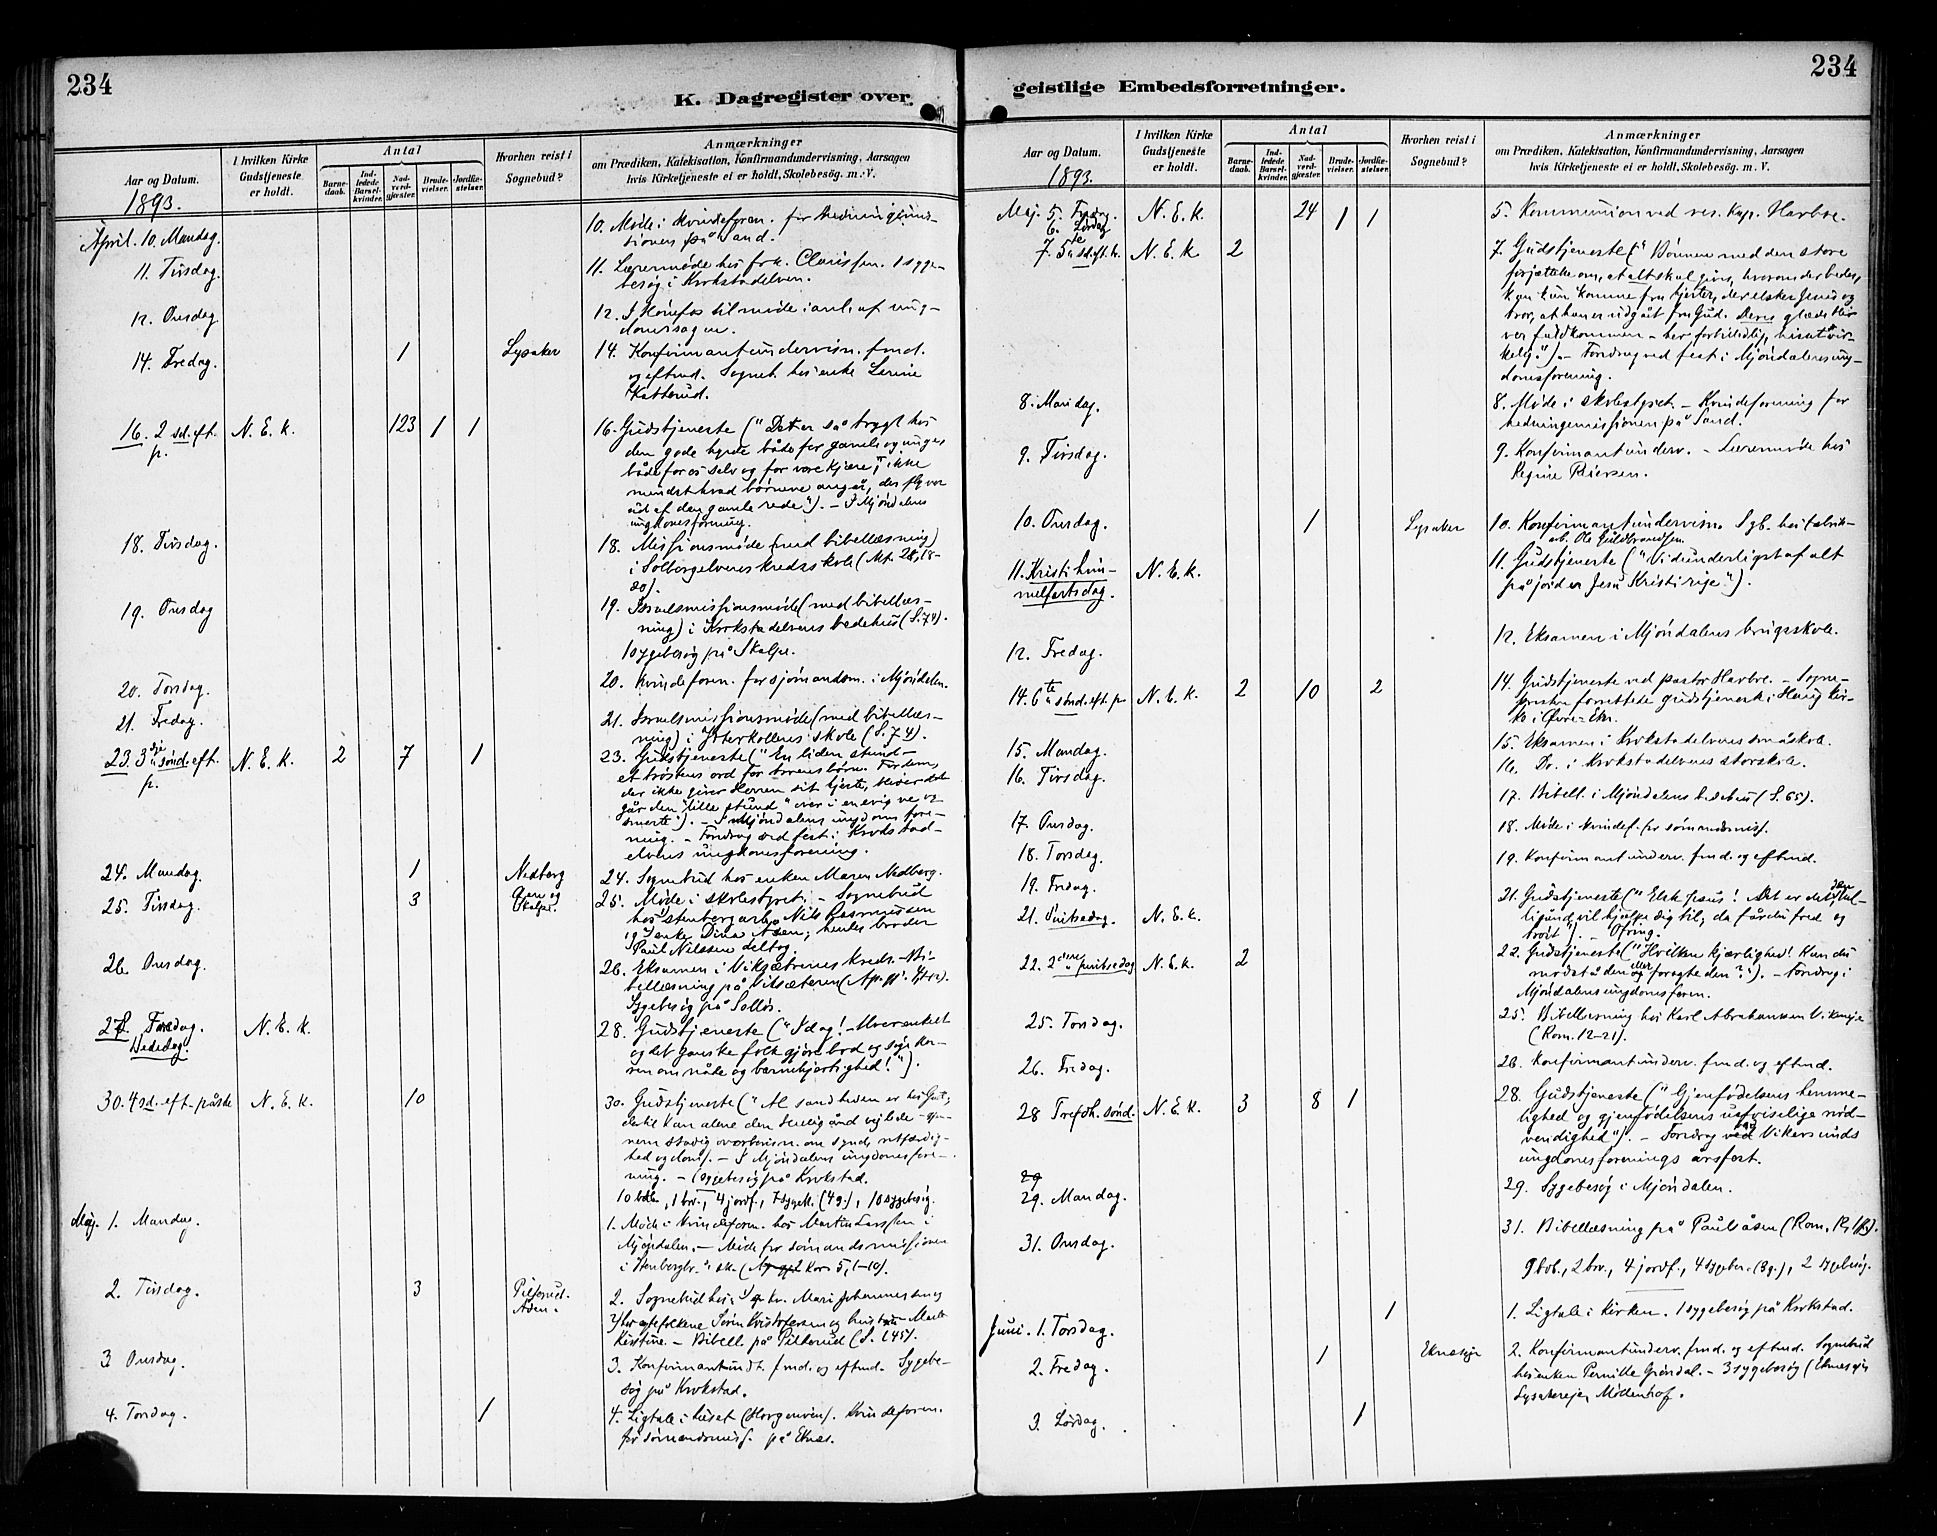 234
K. Dagregister over
Aar og Datum.
1893.
I hvilken Kirke Gudstjeneste er holdt.
Antal
Barnedaab.
Indledede Barselkvinder.
Nadverdgjester.
Brudevielser.
Jordfæstelser.
Hvorhen reist i Sognebud?
Anmærkninger
om Prædiken, Katekisation, Konfirmandundervisning, Aarsagen
hvis Kirketjeneste ei er holdt, Skolebesøg. m. V.
April. 10. Mandag.
10. Møde i kvindeforen. for hedningemis-
sionen på Sand.
11. Tirsdag.
11. Lærermøde hos frk. Claussen. 1 syge-
besøg i Krokstadelven.
12. Onsdag
12. I Hønefos til møde i anl. af ung-
domssagen.
14. Fredag. 1 Lysaker
14. Konfirmantundervisn. fmd.
og eftmd. Sogneb. hos enke
16. 2 sd. eft. p. N. E. k. 123 1 1
16. Gudstjeneste ("Det er så trygt hos
den gode hyrde både for gamle og unge,
både for os selv og for vore kjære, ikke
mindst hvad børnene angår, der fløi
ud af den gamle rede"). - I Mjøndalens
18. Tirsdag.
18. Missionsmøde (med bibellæsning)
i Solbergelvens kredsskole (Mt. 28,18-
20).
19. Onsdag
19. Israelsmissionsmøde (med bibellæs-
ning) i Krokstadelvens bedehus (S. 74).
1 sygebesøg på
20. Torsdag.
20. Kvindeforen. for sjømandsm. i Mjøndalen.
21. Fredag.
21. Israelsmissionsmøde (med bibellæs-
ning) i Ytterkollens skole (S. 74).
23. 3die sønd. eft. p. N. E. k. 2 7 1
23. Gudstjeneste ("En liden stund -
et trøstens ord for troens børn. For dem,
der ikke giver Herren sit hjerte, bliver det
går den "lille stund" over i en evig ve og
smerte"). - I Mjøndalens ungdomsfore-
ning. - Foredrag ved fest i Krokstad-
elvens
24. Mandag. 1 Nedberg
24. Sognebud hos enken Maren Nedberg.
25. Tirsdag. 3
25. Møde i skolestyret. - Sognebud
hos stenbergarb. Nils Rasmussen
og enke Dina Aasen; hendes broder
Paul Nilssen deltog.
26. Onsdag.
26. Eksamen i Viksætrenes kreds. - Bi-
bellæsning på
Sygebesøg på Solløs.
Bededag. N. E. k.
28. Gudstjeneste ("I dag! - Hver enkelt
og det ganske folk gjøre bod og søge Her-
ren om nåde og barmhjertighed!").
30. 4 sd. eft. påske N. E. k. 10
30. Gudstjeneste ("Al sandheden er hos Gud;
dertil kan alene den Hellig ånd veilede gjen-
nem stadig overbevisn. om synd, retfærdig-
hed og dom). - I Mjøndalens ungdomsfore-
ning. - 1 sygebesøg på Krokstad.
10 bdb., 1 brv., 4 jordf., 7 sygek. (4 g.), 10 sygebesøg.
Maj. 1. Mandag.
1. Møde i kvindeforen. hos Martin Larssen i
Mjøndalen. - Møde for sømandsmissionen
i Stenbergbr.s sk. (2 Kor. 5, 1-10).
2. Tirsdag. 3 Pilterud. Aasen.
2. Sognebud hos Mari Johannesdag
Kristine. - Bibell. på Pilterud (S. 145).
3 Onsdag.
3. Konfirmantundv. fmd. og eftmd. Sygebe-
søg på Krokstad.
4. Torsdag. 1
4. Ligtale i huset (Horgenveien). Kvindeforen.
for sømandsmiss. på Eknes.
234
geistlige Embedsforretninger.
Aar og Datum.
1893.
I hvilken Kirke Gudstjeneste er holdt.
Antal
Barnedaab.
Indledede Barselkvinder.
Nadverdgjester.
Brudevielser.
Jordfæstelser.
Hvorhen reist i Sognebud?
Anmærkninger
om Prædiken, Katekisation, Konfirmandundervisning, Aarsagen
hvis Kirketjeneste ei er holdt, Skolebesøg. m. V.
Maj. 5. Fredag. N. E. k. 24 1 1
5. Kommunion ved res. kap. Harboe.
6. Lørdag
7. 5te sd. eft. p. N. E. k 2
7. Gudstjeneste ("Bønnen med den store
forjættelse om, at alt skal gives, hvorom der bedes,
kan kun komme fra hjerter, der elsker Jesus og
tror, at han er udgået fra Gud. Deres glæde bli-
ver fuldkommen - her forbilledlig, hisset vir-
kelig."). - Foredrag ved fest i Mjøndalens ung-
domsforening.
8. Mandag.
8. Møde i skolestyret. - Kvindeforening for
hedningemissionen på Sand.
9. Tirsdag.
9. Konfirmantunderv. - Læremøde hos
Regine Riersen.
10. Onsdag. 1 Lysaker
10. Konfirmantundervisn. Sgb. hos fabrik-
arb. Ole Guldbrandsen.
11. Kristi him-
melfartsdag. N. E. k.
11. Gudstjeneste ("Vidunderligst af alt
på jord er Jesu Kristi rige").
12. Fredag.
12. Eksamen i Mjøndalens brugsskole.
14. 6te sønd. eft. p N. E. k. 2 10 2
14. Gudstjeneste ved pastor Harboe. - Sogne-
presten forrettede gudstjeneste i Haug kir-
ke i Øvre-Eker.
15. Mandag.
15. Eksamen i Krokstadelvens småskole.
16. Tirsdag.
16. Do. i Krokstadelvens storskole.
17. Onsdag.
17. Bibell. i Mjøndalens bedehus (S. 65).
18. Torsdag.
18. Møde i kvindef. for sømandsmiss.
19. Fredag.
19. Konfirmantunderv. fmd. og eftmd.
21. Pintsedag. N. E. k.
21. Gudstjeneste ("Elsk Jesus! Det er det, den Hel-
ligånd vil hjælpe dig til; da får du fred og
trøst"). Ofring.
22. 2den pintsedag N. E. k. 2
22. Gudstjeneste ("Hvilken kjærlighed! Kan du
modstå den eller foragte den?"). - Foredrag i
Mjøndalens ungdomsforen.
25. Torsdag.
25. Bibellæsning hos Karl Abrahamsen Vikeneje
(Rom. 12-21).
26. Fredag.
26. Konfirmantunderv. fmd. og eftmd.
28 Trefoh. sønd. N. E. k. 3 8 1
28. Gudstjeneste ("Gjenfødelsens hemme-
lighed og gjenfødelsens uafviselige nød-
vendighed"). - Foredrag ved Vikersunds
ungdomsforenings årsfest.
29
29. Mandag.
29. Sygebesøg i Mjøndalen.
31. Onsdag.
31. Bibellæsning på Paulsåsen (Rom. 12,
9 bdb., 2 brv., 4 jordf., 4 sygeber. (3 g.), 2 sygebesøg.
Juni. 1. Torsdag. 1
1. Ligtale i kirken. 1 sygebesøg på Krokstad.
2. Fredag. 1 Ekneseje
2. Konfirmantunderv. fmd. og eftmd. Sognebud
hos enken Pernille Grøndal. - 3 sygebesøg (Ekneseje,
Lysakereje, Mødenhof.
3. Lørdag. 1